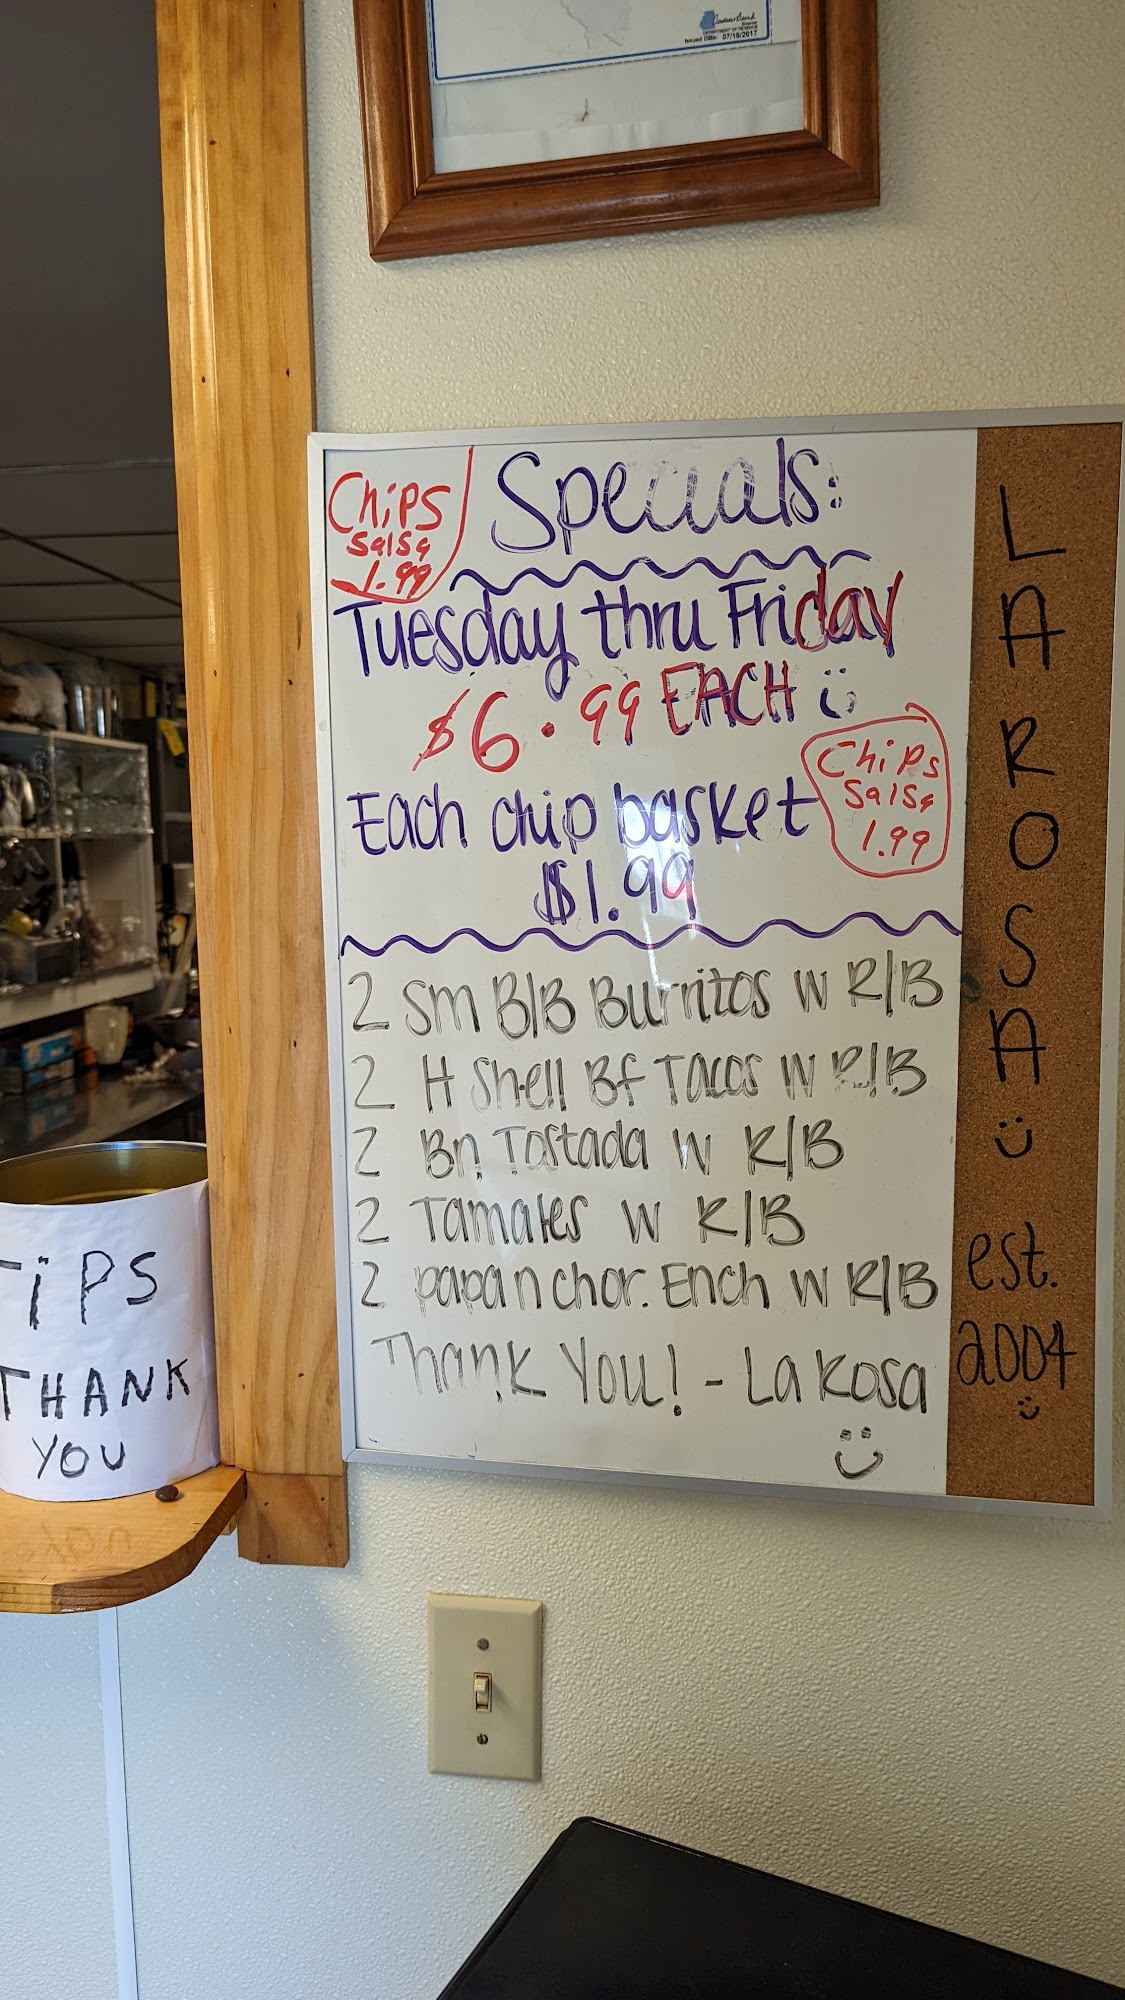 DEPARTMENT OF REVENUE
Issued Date: 07/18/2017
Chips
Salsa
1.99
Specials:
Tuesday thru Friday
$6.99 EACH
Each chip basket
$1.99
Chips
Salsa
1.99
2 Sm B/B Burritos w R/B
2 H Shell Bf Tacos w R/B
2 Bn Tostada w R/B
2 Tamales w R/B
2 papa n chor. Ench w R/B
Thank You! - La Rosa
LA ROSA
est.
2004
TiPS
THANK
YOU